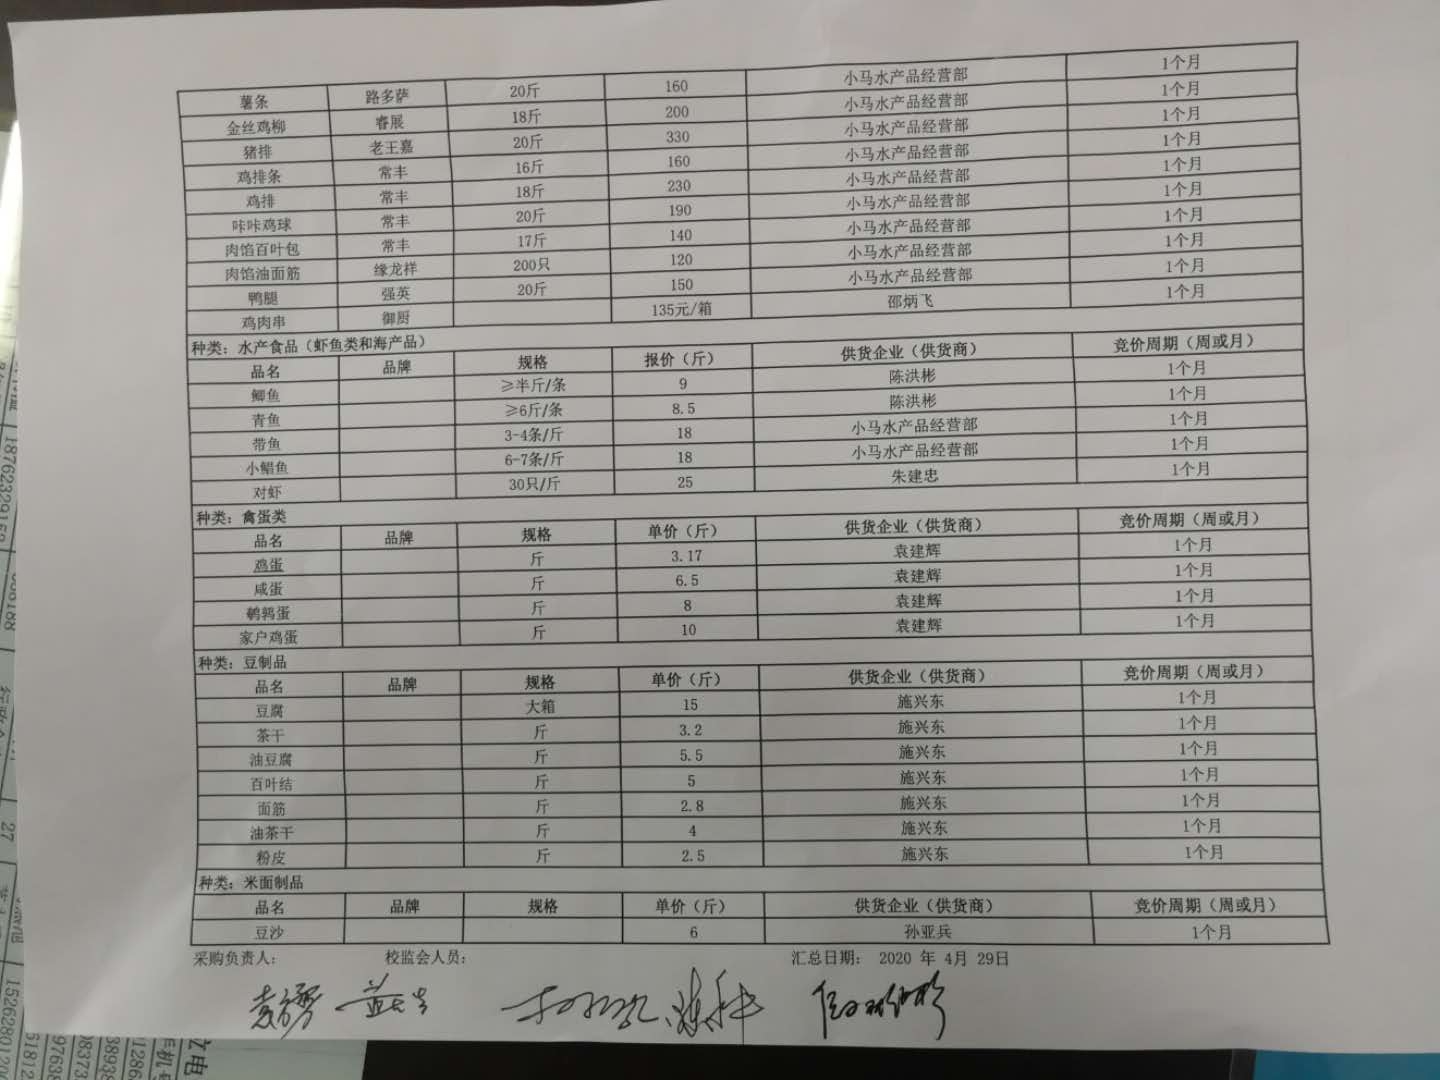 薯条 路多萨 20斤 160 小马水产品经营部 1个月
金丝鸡柳 睿展 18斤 200 小马水产品经营部 1个月
猪排 老王嘉 20斤 330 小马水产品经营部 1个月
鸡排条 常丰 16斤 160 小马水产品经营部 1个月
鸡排 常丰 18斤 230 小马水产品经营部 1个月
咔咔鸡球 常丰 20斤 190 小马水产品经营部 1个月
肉馅百叶包 常丰 17斤 140 小马水产品经营部 1个月
肉馅油面筋 缘龙祥 200只 120 小马水产品经营部 1个月
鸭腿 强英 20斤 150 小马水产品经营部 1个月
鸡肉串 御厨 135元/箱 邵炳飞 1个月
种类：水产食品（虾鱼类和海产品）
品名 品牌 规格 报价（斤） 供货企业（供货商） 竞价周期（周或月）
鲫鱼 ≥半斤/条 9 陈洪彬 1个月
青鱼 ≥6斤/条 8.5 陈洪彬 1个月
带鱼 3-4条/斤 18 小马水产品经营部 1个月
小鲳鱼 6-7条/斤 18 小马水产品经营部 1个月
对虾 30只/斤 25 朱建忠 1个月
种类：禽蛋类
品名 品牌 规格 单价（斤） 供货企业（供货商） 竞价周期（周或月）
鸡蛋 斤 3.17 袁建辉 1个月
咸蛋 斤 6.5 袁建辉 1个月
鹌鹑蛋 斤 8 袁建辉 1个月
家户鸡蛋 斤 10 袁建辉 1个月
种类：豆制品
品名 品牌 规格 单价（斤） 供货企业（供货商） 竞价周期（周或月）
豆腐 大箱 15 施兴东 1个月
茶干 斤 3.2 施兴东 1个月
油豆腐 斤 5.5 施兴东 1个月
百叶结 斤 5 施兴东 1个月
面筋 斤 2.8 施兴东 1个月
油茶干 斤 4 施兴东 1个月
粉皮 斤 2.5 施兴东 1个月
种类：米面制品
品名 品牌 规格 单价（斤） 供货企业（供货商） 竞价周期（周或月）
豆沙 6 孙亚兵 1个月
采购负责人： 校监会人员： 汇总日期： 2020 年 4月 29日